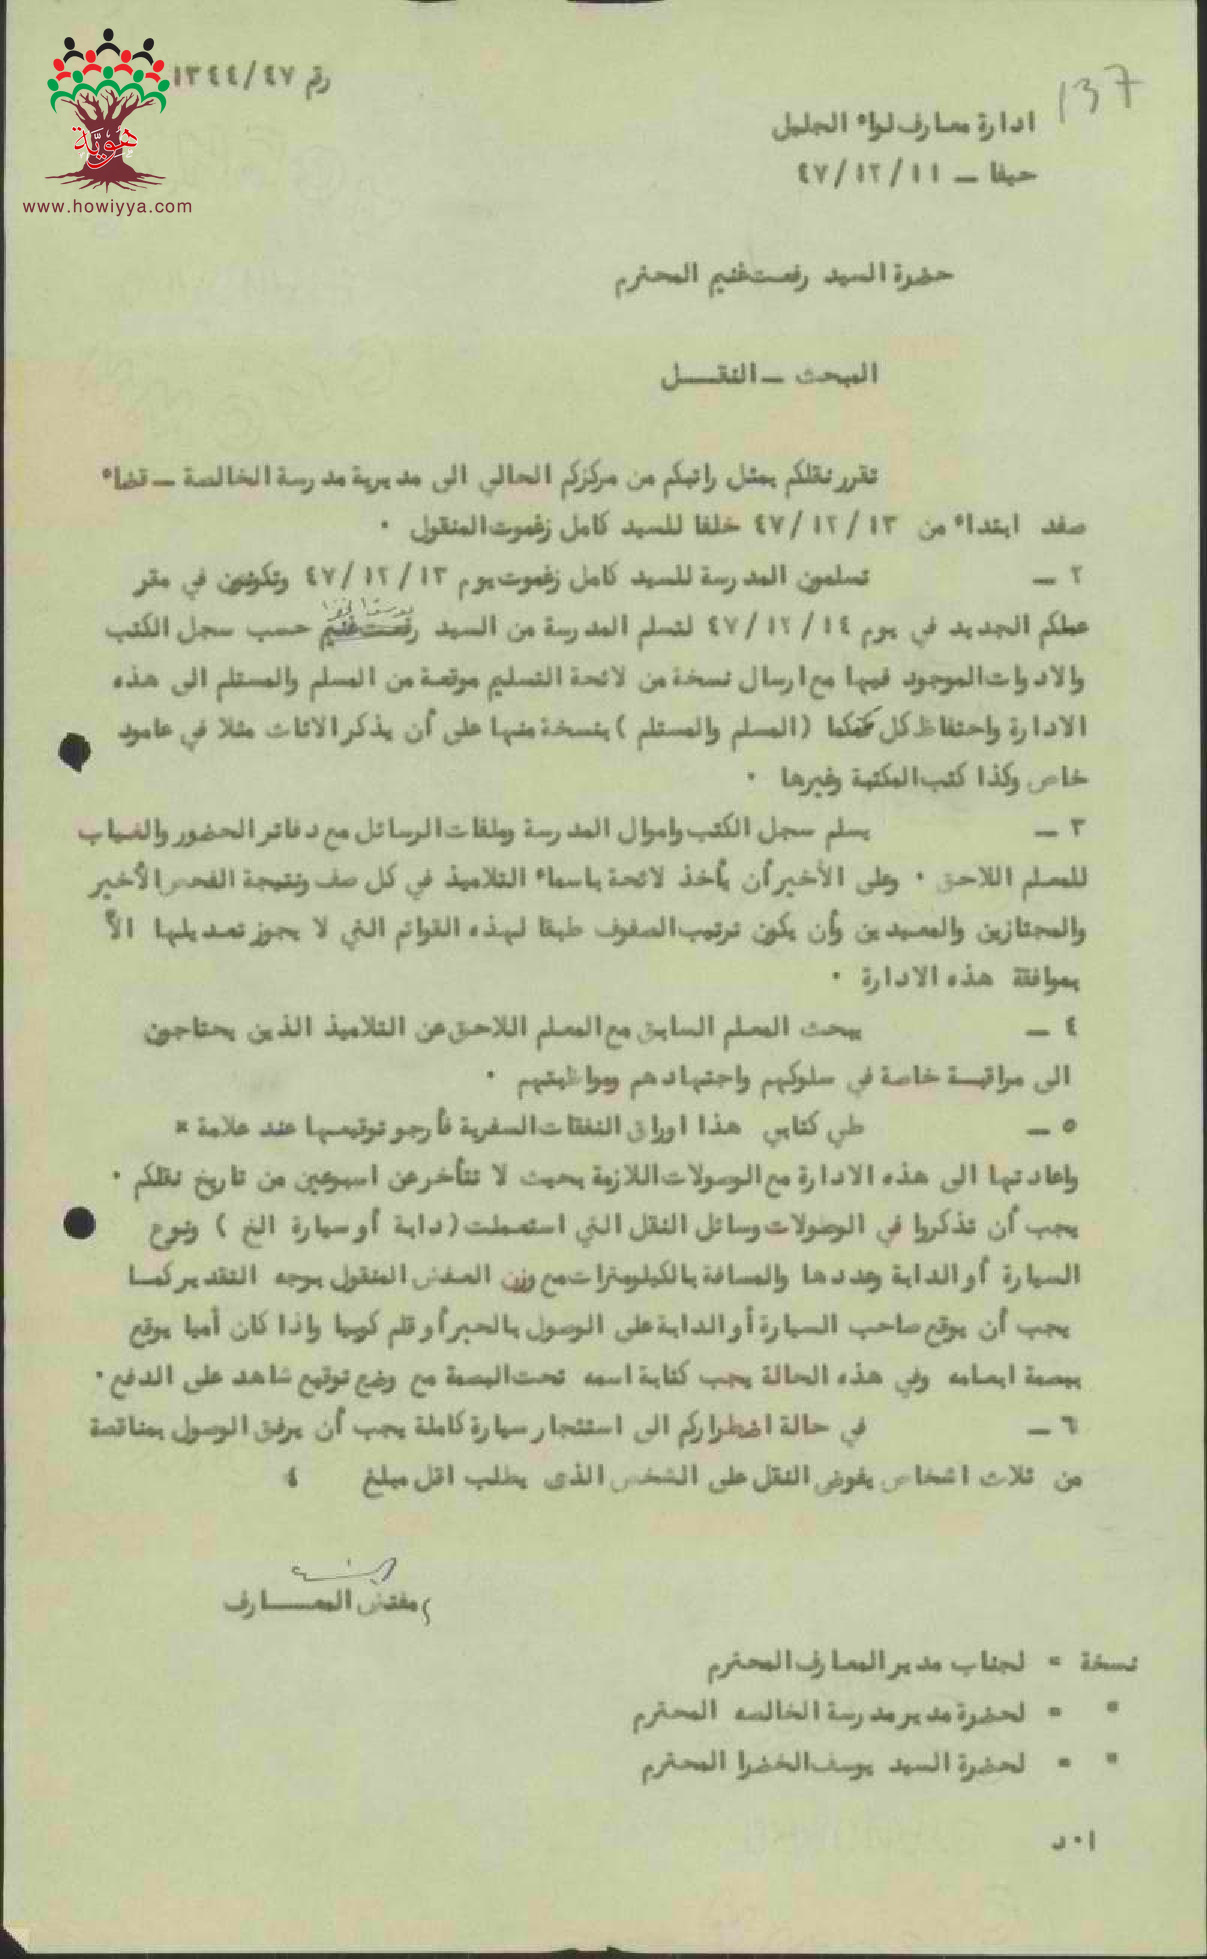 رقم ١٣٤٤/٤٧
137
ادارة معارف لواء الجليل
حيفا ــ ٤٧/١٢/١١
هوية
www.howiyya.com
حضرة السيد رفعت غنيم المحترم
المبحث ــ النقـــل
تقرر نقلكم بمثل راتبكم من مركزكم الحالي الى مديرية مدرسة الخالصة ــ قضاء
صفد ابتداء من ٤٧/١٢/١٣ خلفا للسيد كامل زغموت المنقول ٠
٢ ــ تسلمون المدرسة للسيد كامل زغموت يوم ٤٧/١٢/١٣ وتكونون في مقر
عملكم الجديد في يوم ٤٧/١٢/١٤ لتسلم المدرسة من السيد رفعت غنيم حسب سجل الكتب
والادوات الموجود فيها مع ارسال نسخة من لائحة التسليم موقعة من المسلم والمستلم الى هذه
الادارة واحتفاظ كل منكما (المسلم والمستلم) بنسخة منها على أن يذكر الاثاث مثلا في عامود
خاص وكذا كتب المكتبة وغيرها ٠
٣ ــ يسلم سجل الكتب واموال المدرسة وملفات الرسائل مع دفاتر الحضور والغياب
للمعلم اللاحق ٠ وعلى الأخير أن يأخذ لائحة باسماء التلاميذ في كل صف ونتيجة الفحص الأخير
والمجتازين والمعيدين وأن يكون ترتيب الصفوف طبقا لهذه القوائم التي لا يجوز تعديلها الاّ
بموافقة هذه الادارة ٠
٤ ــ يبحث المعلم السابق مع المعلم اللاحق عن التلاميذ الذين يحتاجون
الى مراقبة خاصة في سلوكهم واجتهادهم ومواظبتهم ٠
٥ ــ طي كتابي هذا اوراق النفقات السفرية فأرجو توقيعها عند علامة ×
واعادتها الى هذه الادارة مع الوصولات اللازمة بحيث لا تتأخر عن اسبوعين من تاريخ نقلكم ٠
يجب أن تذكروا في الوصولات وسائل النقل التي استعملت (دابة أو سيارة الخ) ونوع
السيارة أو الدابة وعددها والمسافة بالكيلومترات مع وزن العفش المنقول بوجه التقدير كما
يجب أن يوقع صاحب السيارة أو الدابة على الوصول بالحبر أو قلم كوبيا واذا كان أميا يوقع
ببصمة ابهامه وفي هذه الحالة يجب كتابة اسمه تحت البصمة مع وضع توقيع شاهد على الدفع ٠
٦ ــ في حالة اضطراركم الى استئجار سيارة كاملة يجب أن يرفق الوصول بمناقصة
من ثلاث اشخاص يفوض النقل على الشخص الذى يطلب اقل مبلغ ٤
مفتش المعـــارف
نسخة " لجناب مدير المعارف المحترم
" " لحضرة مدير مدرسة الخالصه المحترم
" " لحضرة السيد يوسف الخضرا المحترم
ا٠د